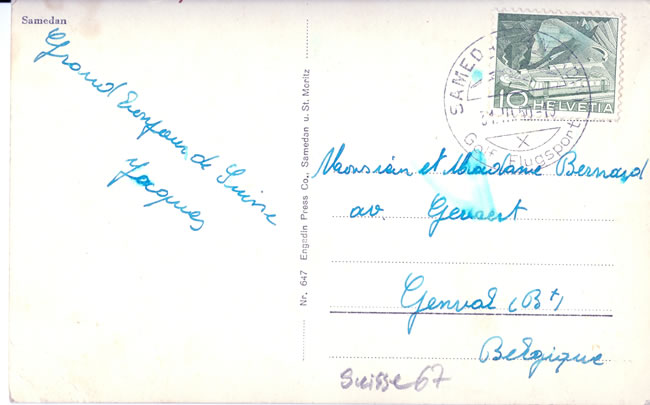 Samedan
Grand bonjour de Suisse
Jacques
Nr. 647 Engadin Press Co., Samedan u. St. Moritz
10 HELVETIA
SAMED
Golf Flugsport
X
Monsieur et Madame Bernard
av. Gevaert
Genval (Bt)
Belgique
Suisse 67